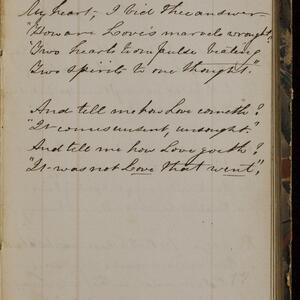 My heart, I bid thee answer
"How are Love's marvels wrought?
"Two hearts to one pulse beating
"Two spirits to one thought."
And tell me how Love cometh?
"It comes unsent, unsought."
And tell me how Love goeth?
"It was not Love that went",